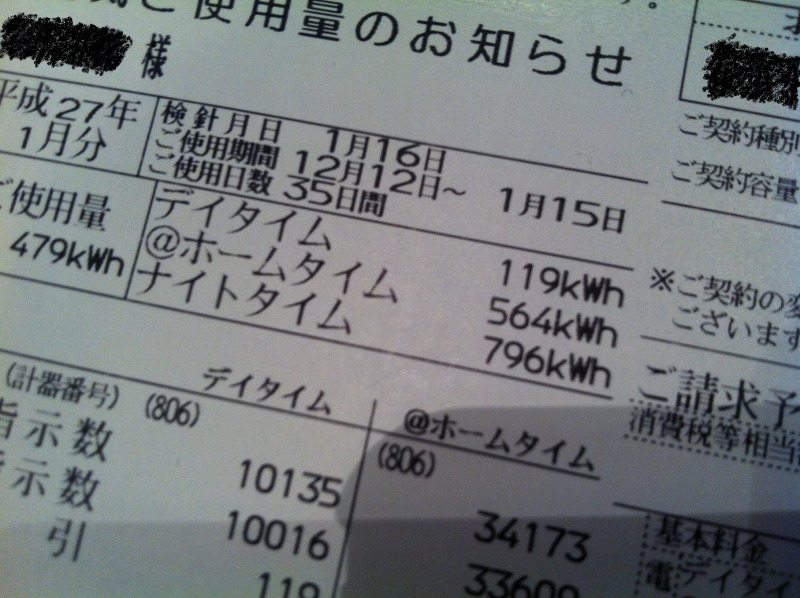 ご使用量のお知らせ
様
平成27年
1月分
検針月日 1月16日
ご使用期間 12月12日~ 1月15日
ご使用日数 35日間
ご使用量
479kWh
デイタイム 119kWh
@ホームタイム 564kWh
ナイトタイム 796kWh
ご契約種別
ご契約容量
※ご契約の変
ございます
ご請求予
消費税等相当
基本料金
電 デイタイ
(計器番号)
デイタイム
(806)
@ホームタイム
(806)
指示数 10135 34173
指示数 10016 33609
引 119